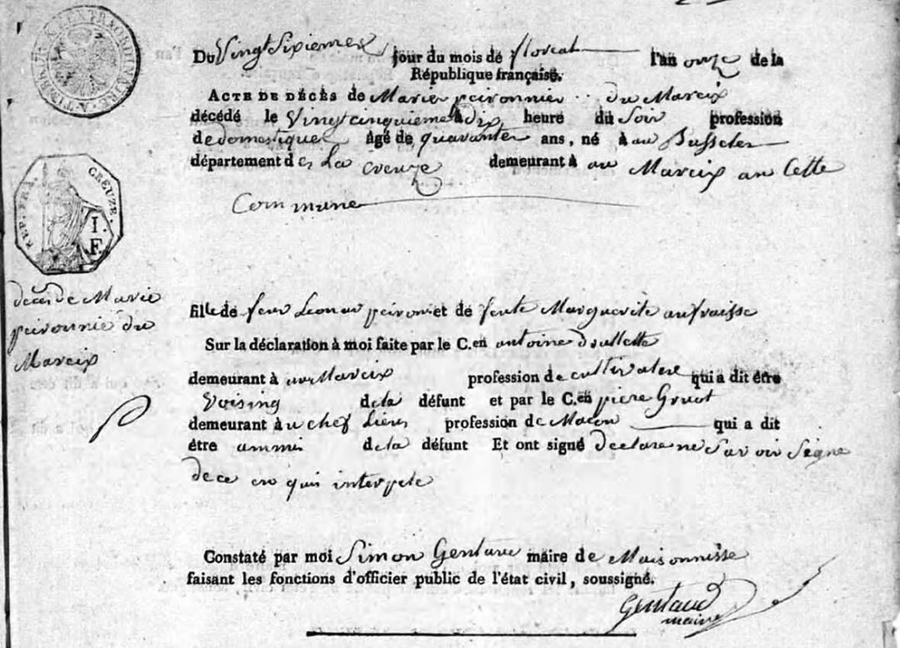 TIMBRE EXTRAORDINAIRE
Du Vingt Sixieme jour du mois de floreal l'an onze de la
République française.
ACTE DE DÉCÈS de Marie peironnier du Mareix
décédé le Vingt cinquieme à dix heure du Soir profession
de domestique âgé de quarante ans, né à au Busselet
département de La Creuze demeurant à au Mareix an Cette
Commune
REP. FRA. CREUZE.
I.
F.
deces de Marie
peironnie du
Mareix
fille de feu Leonar peironi et de feute Marguerite aufraisse
Sur la déclaration à moi faite par le C.en antoine
demeurant à au Mareix profession de cultivatere qui a dit être
Voising de la défunt et par le C.en piere Gruot
demeurant à u chef Lieus profession de Macon qui a dit
être ammi de la défunt Et ont signé declare ne Savoir Signe
de ce en quis interpele
Constaté par moi Simon Gentaud maire de Maisonnisse
faisant les fonctions d'officier public de l'état civil, soussigné.
Gentaud
maire